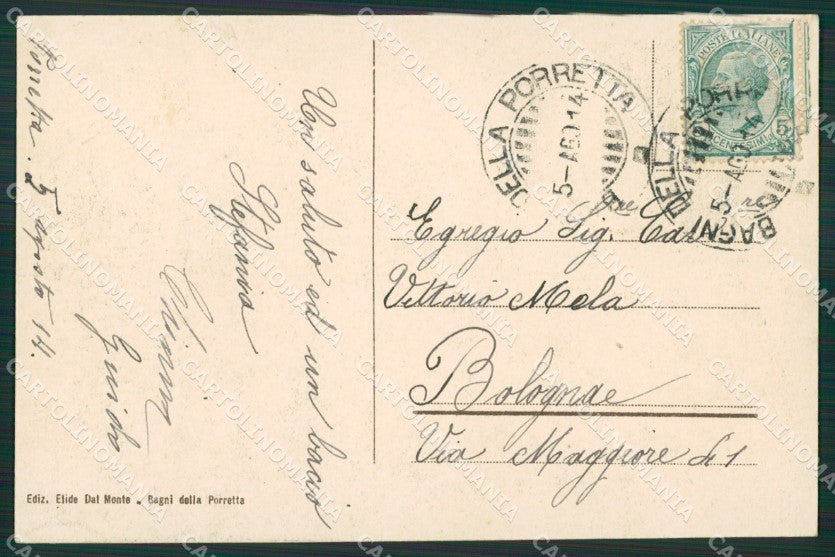 Porretta. 5 agosto 14.
Un saluto ed un bacio
Stefanina
Guido
Ediz. Elide Dal Monte - Bagni della Porretta
POSTE ITALIANE
CENTESIMI 5
DELLA PORRETTA
5-AGO 14
BAGNI DELLA PORR
5-AGO 14
Egregio Sig. Cav.
Vittorio Mela
Bologna
Via Maggiore 41
CARTOLINOMANIA